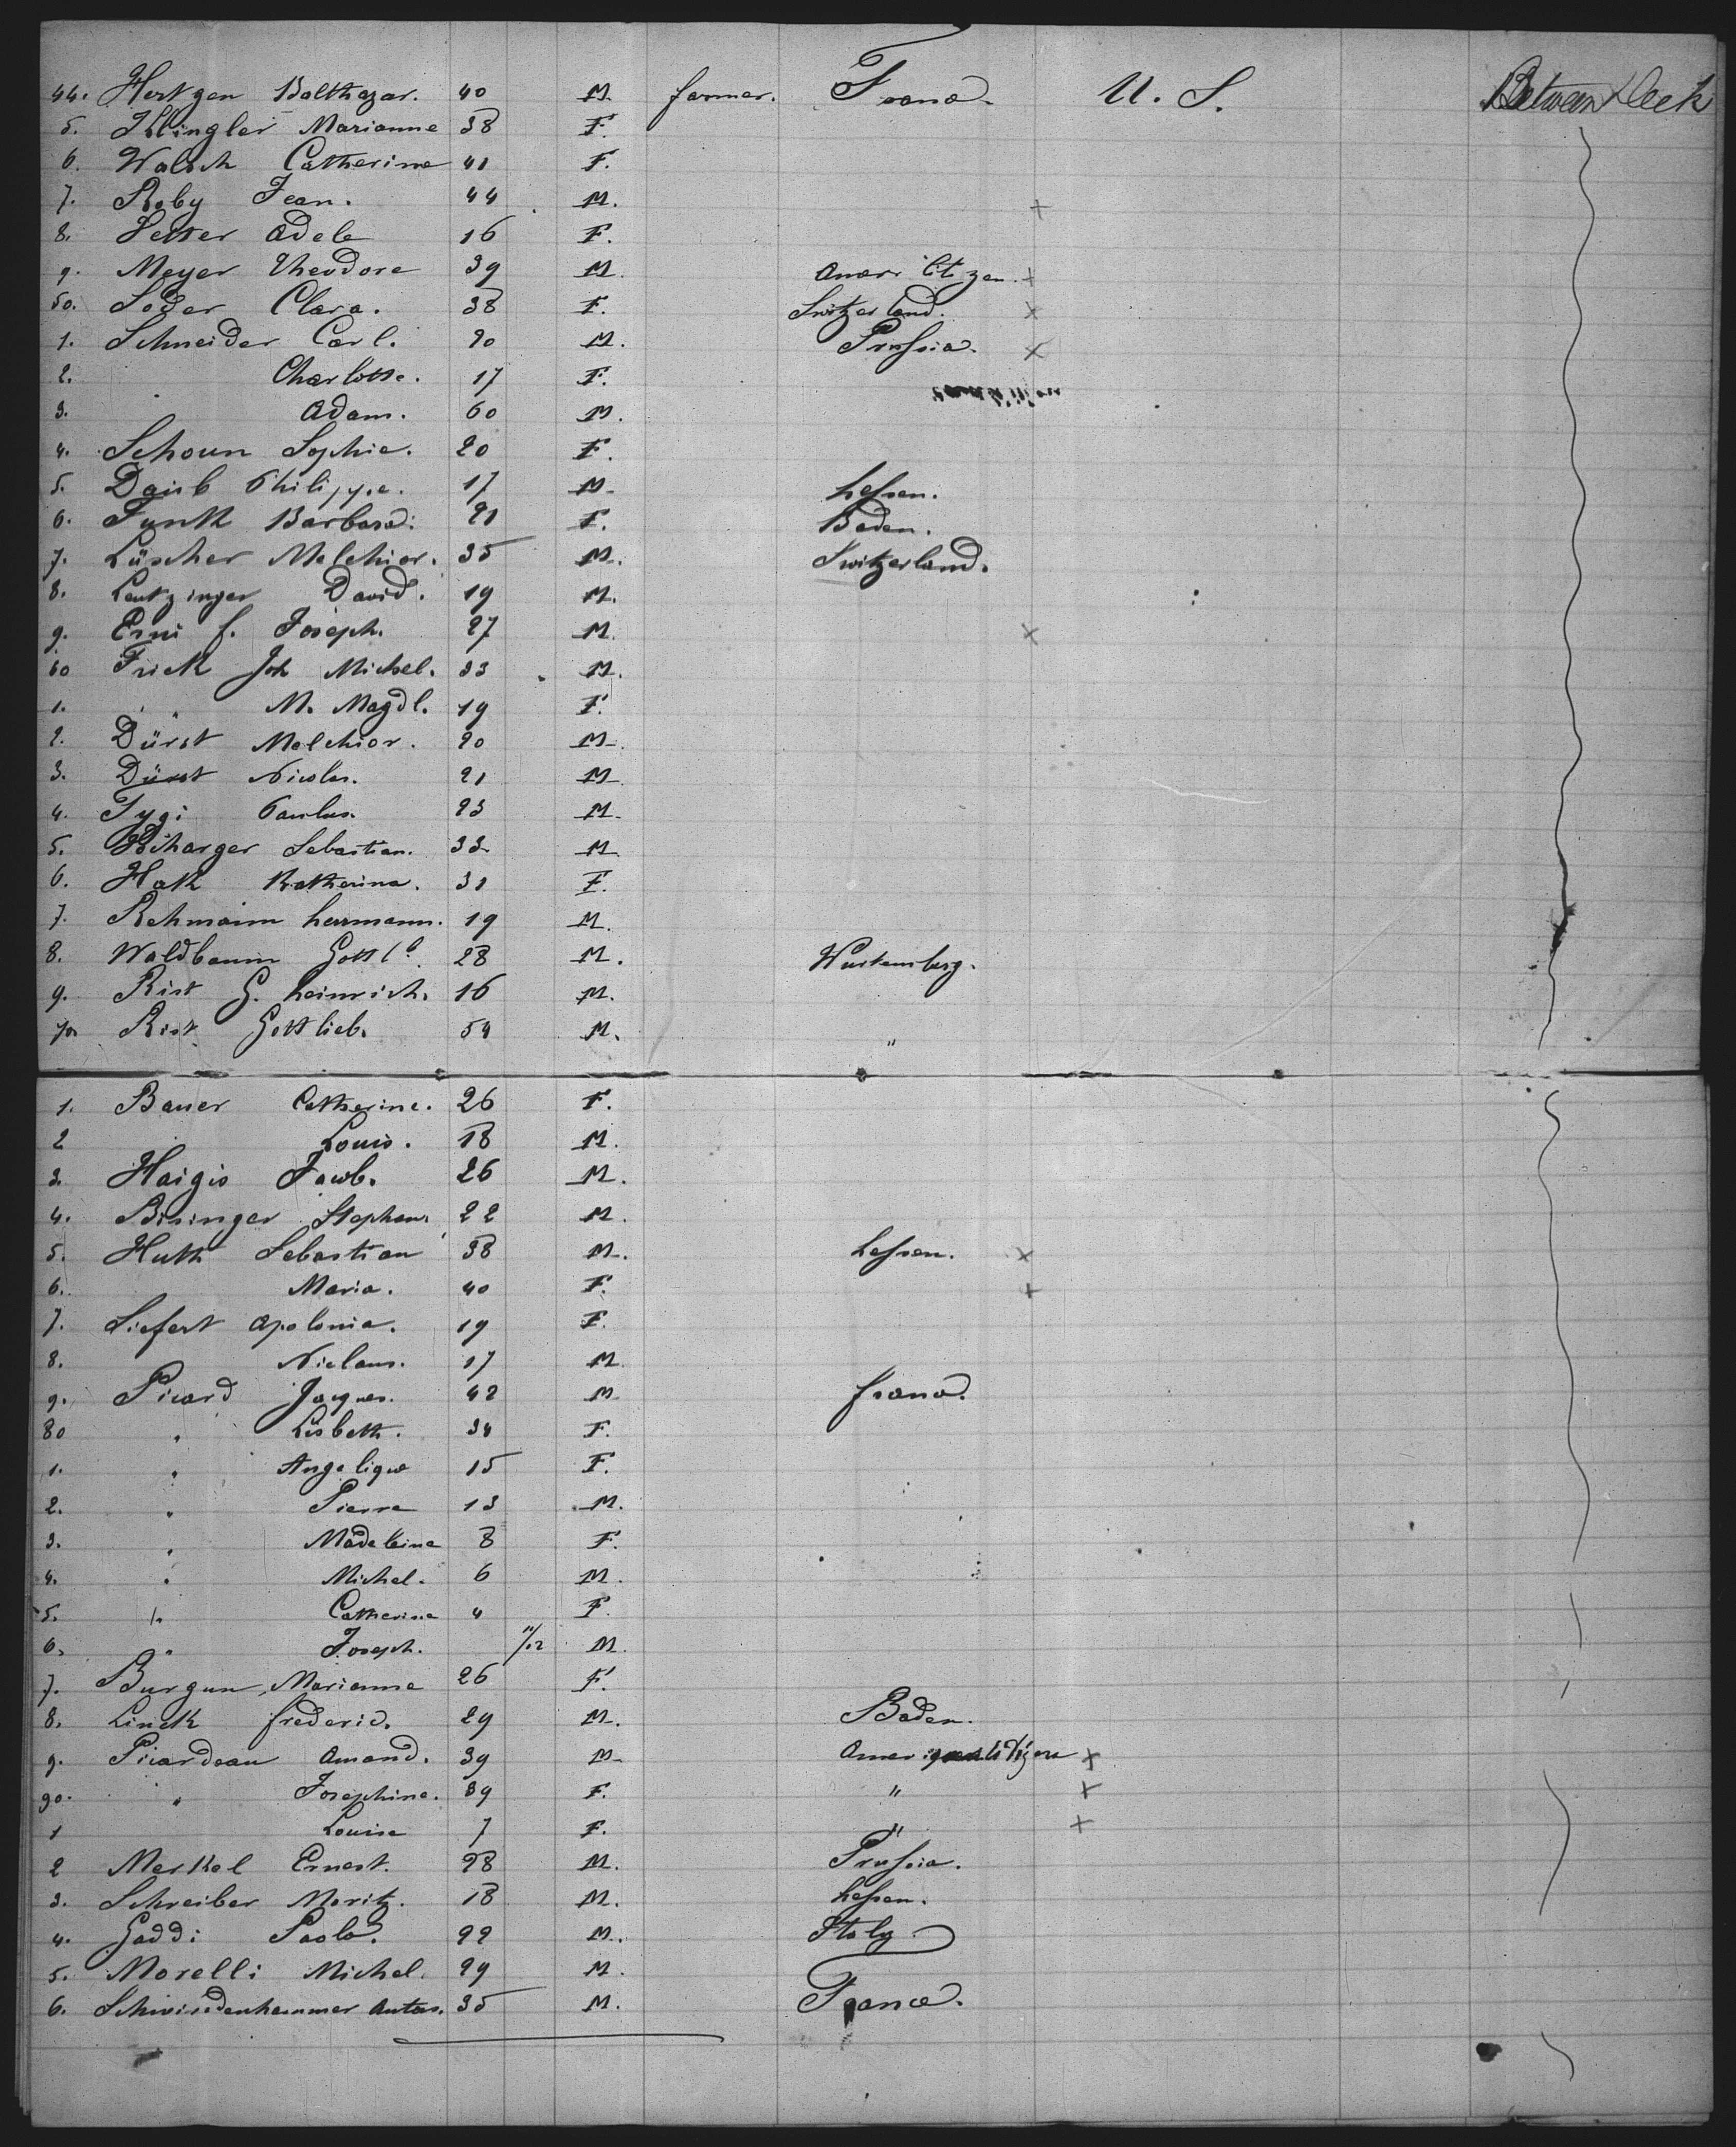 44. Hertzen Balthazar. 40 M. farmer. France. U. S. Between Deck
5. Klingler Marianne 38 F.
6. Walch Catherine 41 F.
7. Roby Jean. 44 M. +
8. Adele 16 F.
9. Meyer Theodore 39 M. Amer. Citizen. +
50. Soder Clara. 38 F. Switzerland. x
1. Schneider Carl. 20 M. Prussia. x
2. Charlotte. 17 F.
3. Adam. 60 M.
4. Schoun Sophie. 20 F.
5. Daub Philippe. 17 M. hessen.
6. Funk Barbara. 21 F. Baden.
7. Lüscher Melchior. 35 M. Switzerland.
8. Leutzinger David. 19 M.
9. Erni f. Joseph. 27 M. x
60 Frick Joh Michel. 23 M.
1. " " M. Magdl. 19 F.
2. Dürst Melchior. 20 M.
3. Dürst Nicolas. 21 M.
4. Tygi Paulus. 23 M.
5. Sebastian. 33 M
6. Hak Katherina. 31 F.
7. Rehmann herrmann. 19 M.
8. Waldbaum Gottlb. 28 M. Wurtemberg.
9. Rist G. heinrich. 16 M.
70 Rist Gottlieb. 54 M. "
1. Bauer Catherine. 26 F.
2 Louis. 18 M.
3. Haigis Jacob. 26 M.
4. Bisinger Stephan. 22 M.
5. Huth Sebastian 38 M. hessen. x
6. Maria. 40 F. +
7. Siefert Apolonia. 19 F.
8. Niclaus. 17 M.
9. Picard Jacques. 42 M france.
80 " Lisbeth. 34 F.
1. " Angelique 15 F.
2. " Pierre 13 M.
3. " Madeleine 8 F.
4. " Michel. 6 M.
5. " Catherine 4 F.
6. " Joseph. 11/12 M.
7. Burgun Marianne 26 F.
8. Linck frederic. 29 M. Baden.
9. Picardeau Amand. 39 M. American Citizen x
90. " Josephine. 39 F. " x
1 Louise 7 F. " x
2 Merkel Ernest. 28 M. Prussia.
3. Schreiber Moritz. 18 M. hessen.
4. Gaddi Paolo. 22 M. Italy
5. Morelli Michel. 29 M.
6. Schwindenhammer Anton. 35 M. France.